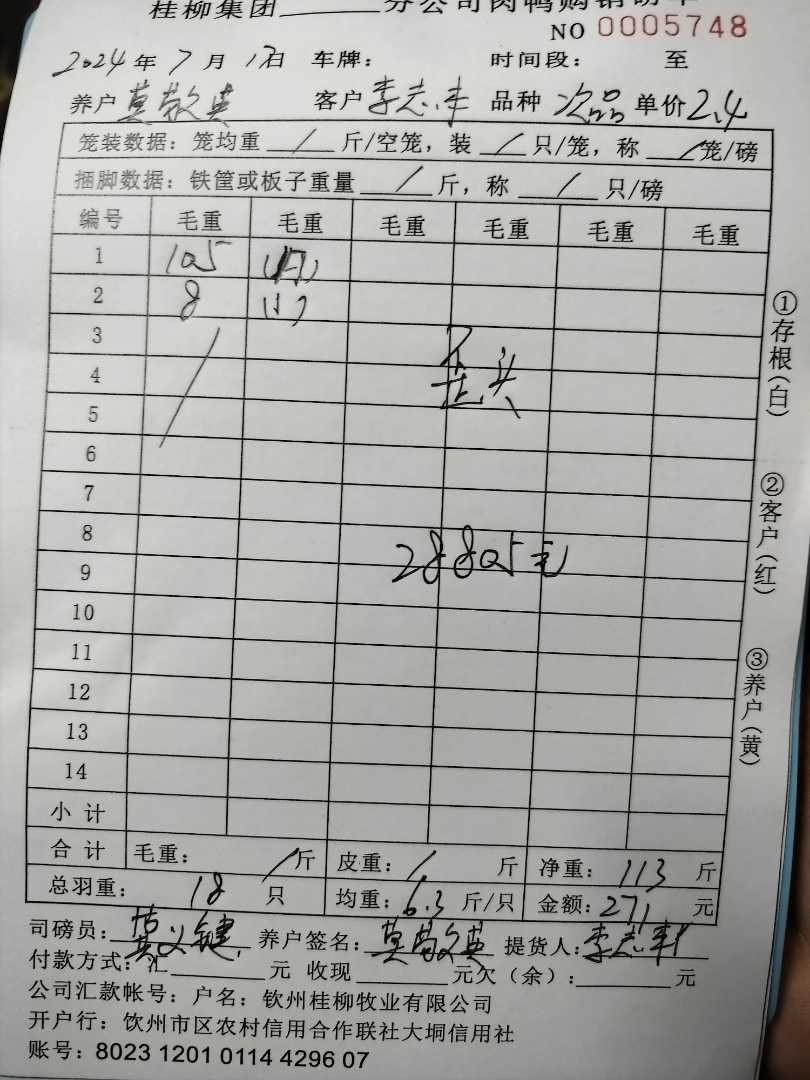 桂柳集团 分公司肉鸭购销明单
NO 0005748
2024年7月17日 车牌： 时间段： 至
养户 莫敬英 客户 李志丰 品种 次品 单价 2.4
笼装数据：笼均重 / 斤/空笼，装 / 只/笼，称 / 笼/磅
捆脚数据：铁筐或板子重量 / 斤，称 / 只/磅
编号 毛重 毛重 毛重 毛重 毛重 毛重
1 105 (17)
2 8 (1)
3
4
5
6
7
8
9
10
11
12
13
14
歪头
28805毛
小计
合计 毛重： / 斤 皮重： / 斤 净重： 113 斤
总羽重： 18 只 均重： 6.3 斤/只 金额： 271 元
司磅员： 莫义键 养户签名： 莫敬英 提货人： 李志丰
付款方式：汇 元 收现 元欠（余）： 元
公司汇款帐号：户名：钦州桂柳牧业有限公司
开户行：钦州市区农村信用合作联社大垌信用社
账号：8023 1201 0114 4296 07
①存根（白）
②客户（红）
③养户（黄）